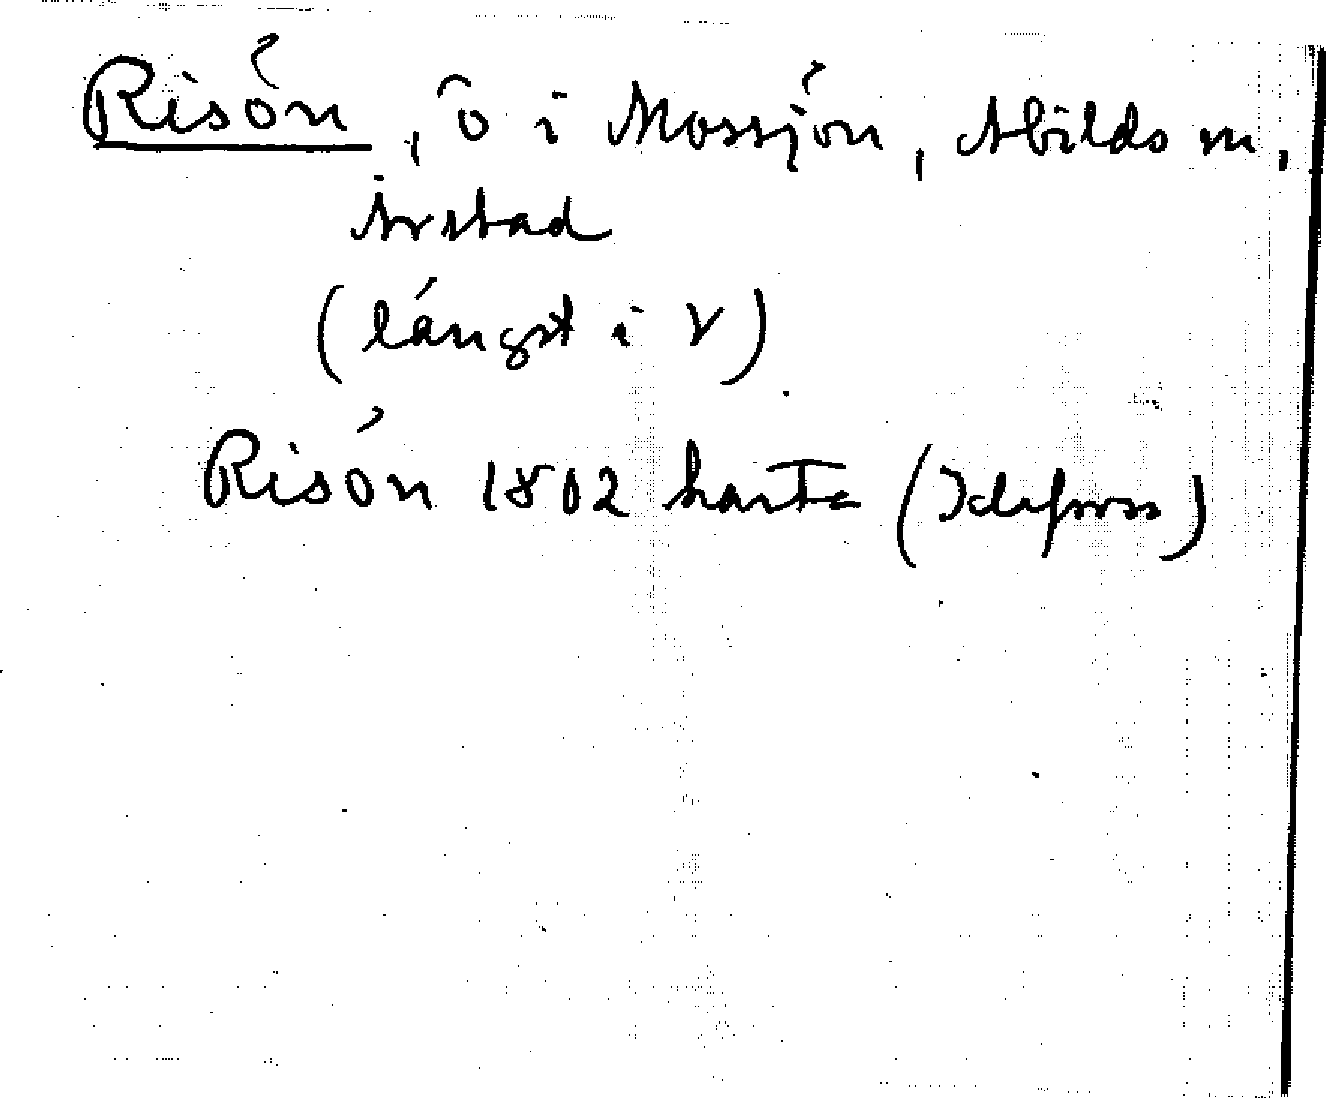 Risön, ö i Mossjön, Abilds sn,
Årstad
(längst i V)
Risön 1802 karta (Idefors)